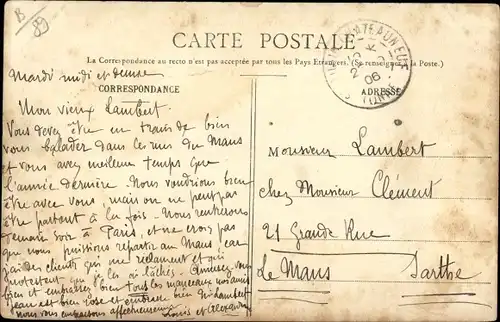 B
89
CARTE POSTALE
La Correspondance au recto n'est pas acceptée par tous les Pays Etrangers. (Se renseigner à la Poste.)
CHATEAUNEUF
06
Mardi midi et demie
CORRESPONDANCE
Mon vieux Lambert.
Vous devez être en train de bien
vous balader dans les rues du Mans
et vous avez meilleur temps que
l'année dernière. Nous voudrions bien
être avec vous, mais on ne peut pas
être partout à la fois. Nous rentrerons
demain soir à Paris, et ne crois pas
que nous puissions repartir au Mans, car
j'ai des clients qui me réclament et qui
protestent que je les ai lâchés. Amusez vous
bien et embrassez bien tous les
est bien rose et
nous vous embrassons affectueusement Louis et Alexandre
ADRESSE
Monsieur Lambert
chez Monsieur Clément
21 Grande Rue
Le Mans Sarthe